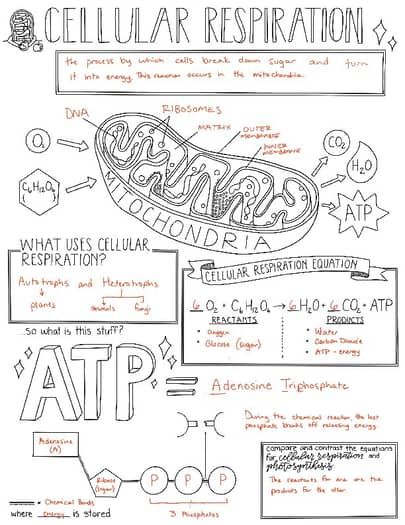 CELLULAR RESPIRATION
the process by which cells break down sugar and turn
it into energy. This reaction occurs in the mitochondria.
DNA
RIBOSOMES
MATRIX
OUTER
MEMBRANE
INNER
MEMBRANE
O₂
C₆H₁₂O₆
CO₂
H₂O
ATP
MITOCHONDRIA
WHAT USES CELLULAR
RESPIRATION?
Autotrophs and Heterotrophs
plants
animals
fungi
CELLULAR RESPIRATION EQUATION
6 O₂ + C₆H₁₂O₆ → 6 H₂O + 6 CO₂ + ATP
REACTANTS
• Oxygen
• Glucose (sugar)
PRODUCTS
• Water
• Carbon Dioxide
• ATP - energy
...so what is this stuff?
ATP = Adenosine Triphosphate
During the chemical reaction, the last
phosphate breaks off releasing energy.
Adenosine
(A)
Ribose
(sugar)
P P P
3 Phosphates
= Chemical Bonds
where energy is stored
compare and contrast the equations
for cellular respiration and
photosynthesis
The reactants for one are the
products for the other.